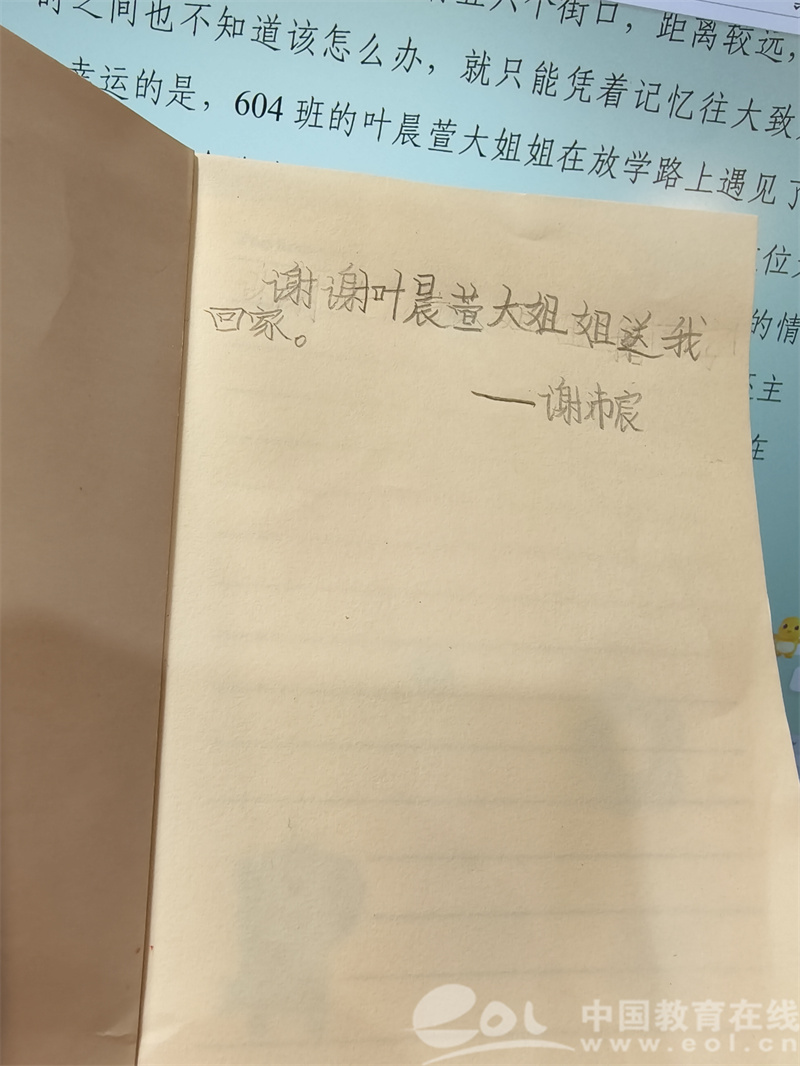 个街口，距离较远，
时之间也不知道该怎么办，就只能凭着记忆往大致
幸运的是，604班的叶晨萱大姐姐在放学路上遇见了
位
的情
主
在
谢谢叶晨萱大姐姐送我
回家。
——谢沛宸
中国教育在线
eol
www.eol.cn